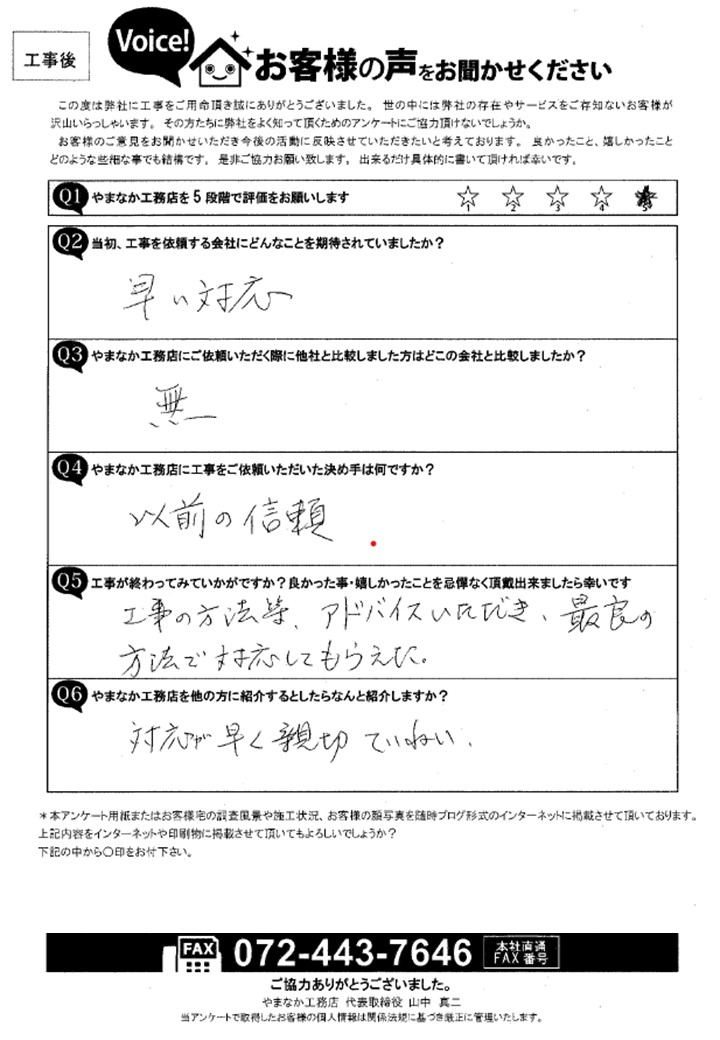 工事後
Voice!
お客様の声をお聞かせください
この度は弊社に工事をご用命頂き誠にありがとうございました。 世の中には弊社の存在やサービスをご存知ないお客様が
沢山いらっしゃいます。 その方たちに弊社をよく知って頂くためのアンケートにご協力頂けないでしょうか。
お客様のご意見をお聞かせいただき今後の活動に反映させていただきたいと考えております。 良かったこと、嬉しかったこと
どのような些細な事でも結構です。 是非ご協力お願い致します。 出来るだけ具体的に書いて頂ければ幸いです。
Q1 やまなか工務店を5段階で評価をお願いします
1 2 3 4 5
Q2 当初、工事を依頼する会社にどんなことを期待されていましたか?
早い対応
Q3 やまなか工務店にご依頼いただく際に他社と比較しました方はどこの会社と比較しましたか?
無
Q4 やまなか工務店に工事をご依頼いただいた決め手は何ですか?
以前の信頼
Q5 工事が終わってみていかがですか?良かった事・嬉しかったことを忌憚なく頂戴出来ましたら幸いです
工事の方法等、アドバイスいただき、最良の
方法で対応してもらえた。
Q6 やまなか工務店を他の方に紹介するとしたらなんと紹介しますか?
対応が早く親切 ていねい、
*本アンケート用紙またはお客様宅の調査風景や施工状況、お客様の顔写真を随時ブログ形式のインターネットに掲載させて頂いております。
上記内容をインターネットや印刷物に掲載させて頂いてもよろしいでしょうか?
下記の中から〇印をお付下さい。
FAX 072-443-7646 本社直通 FAX番号
ご協力ありがとうございました。
やまなか工務店 代表取締役 山中 真二
当アンケートで取得したお客様の個人情報は関係法規に基づき厳正に管理いたします。